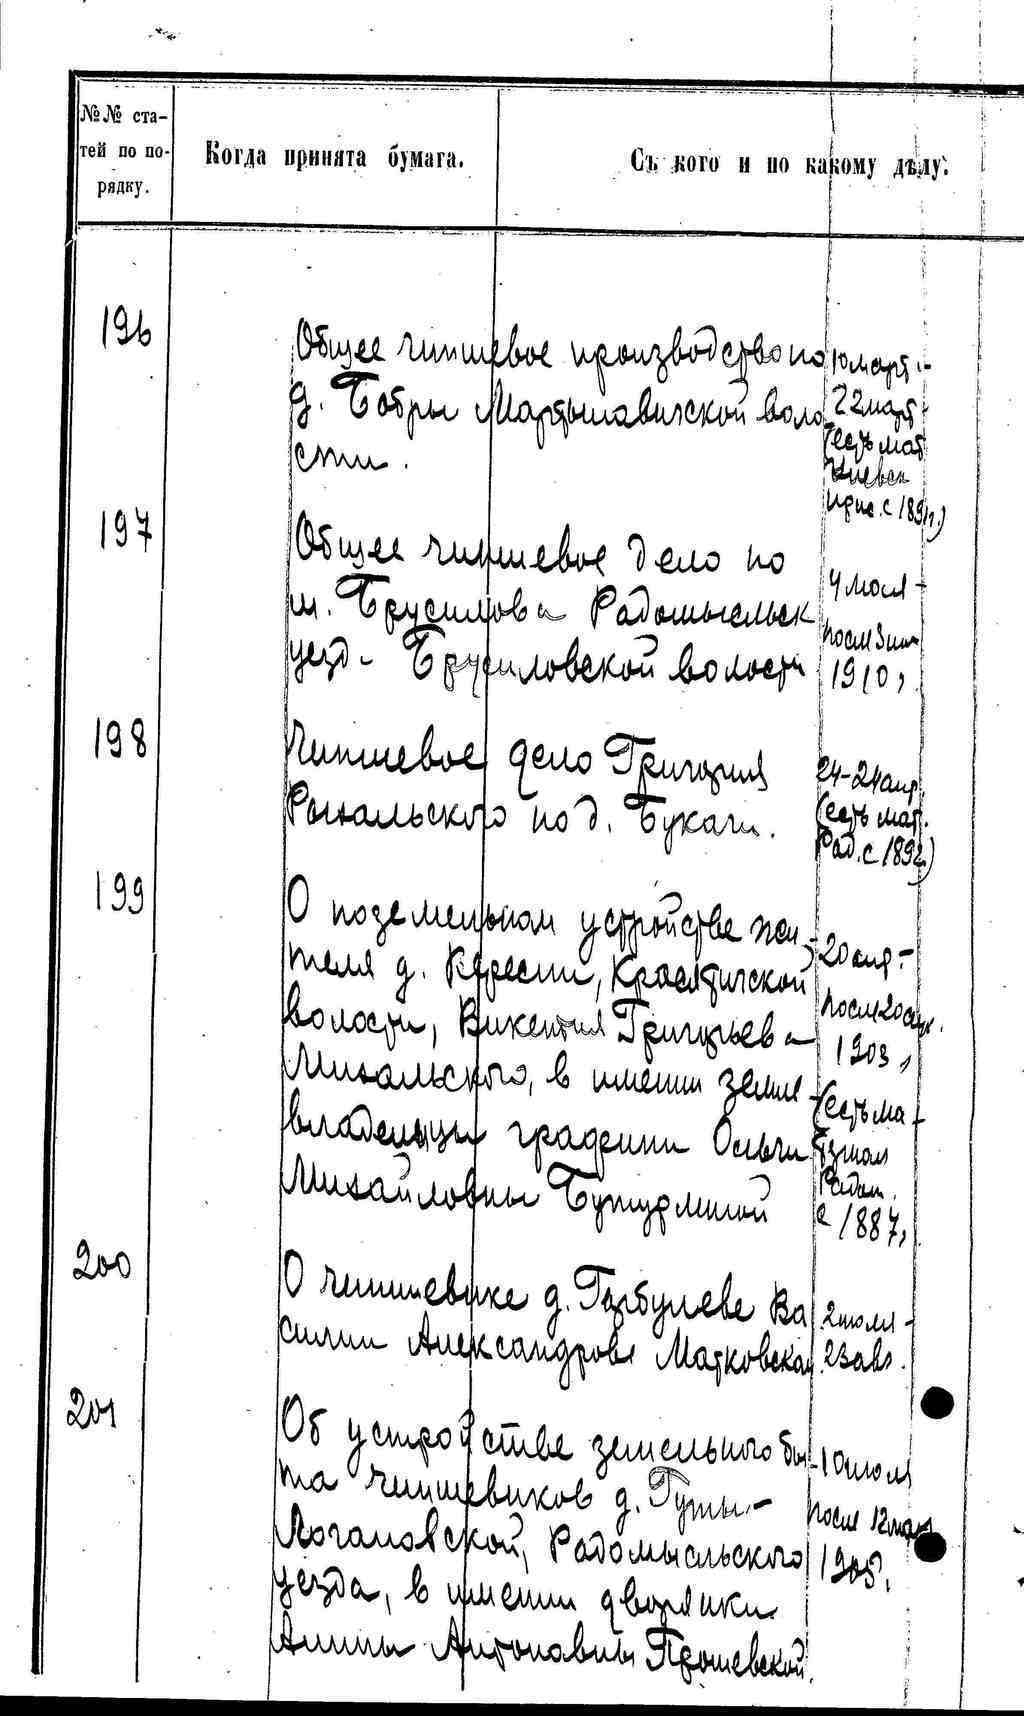 №№ ста-
тей по по-
рядку.
Когда принята бумага.
Съ кого и по какому дѣлу.
196
Общее чиншевое производство по
д. Бобры Мартыновичской воло
сти.
10 март. -
22 март
(есть мат
Киевск
с 1891г.)
197
Общее чиншевое дело по
м. Брусилова Радомысльск
уезд. Брусиловской волости
4 июля -
после
1910г.
198
Чиншевое дело Григория
Рыхальского по д. Букачи.
24-24 апр.
(есть мат.
Рад. с 1892)
199
О поземельном устройстве жи-
теля д. Каресты, Красятичской
волости, Викентия Григорьева
Михальского, в имении земле-
владелицы графини Ольги
Михайловны Бутурлиной
20 апр. -
после 20
1903г
(есть ма-
териал
Радом.
с 1887г
200
О чиншевике д. Горбулеве Ва
силии Александрове Матковском
2 июля -
23 авг.
201
Об устройстве земельного бы-
та чиншевиков д. Гуты-
Логановской, Радомысльского
уезда, в имении дворянки
Анны Антоновны Прошевской.
10 июля
после 12 мая
1905г.